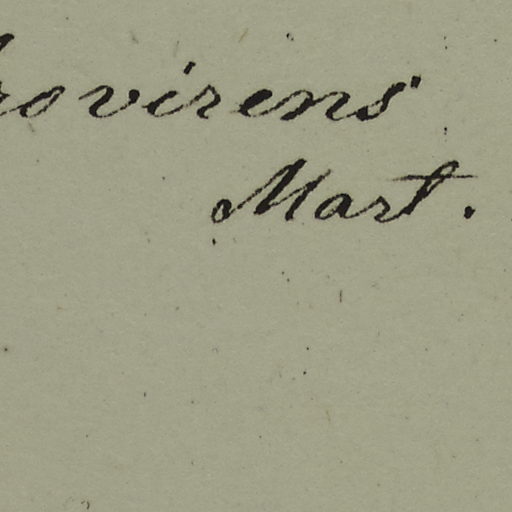 rovirens
Mart.